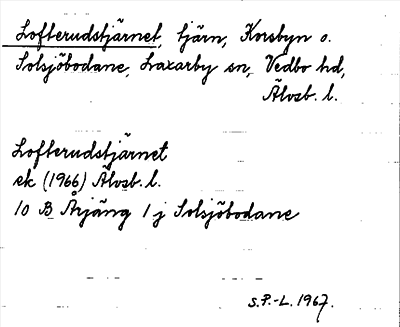 Lofterudstjärnet, tjärn, Korsbyn o.
Solsjöbodane, Laxarby sn, Vedbo hd,
Älvsb. l.
Lofterudstjärnet
ek (1966) Älvsb. l.
10 B Årjäng 1 j Solsjöbodane
S.P.-L. 1967.